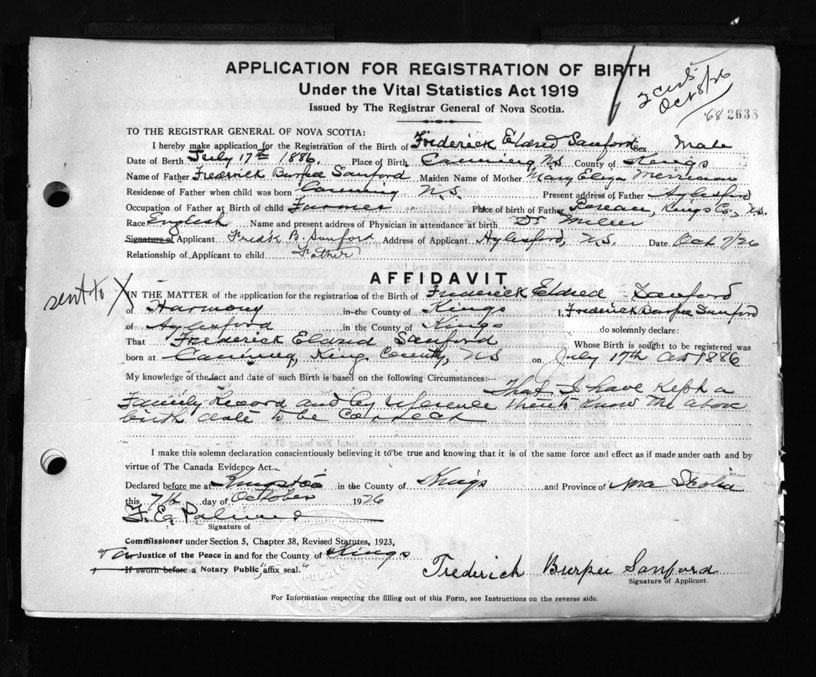 APPLICATION FOR REGISTRATION OF BIRTH
Under the Vital Statistics Act 1919
Issued by The Registrar General of Nova Scotia.
Oct 8/26
68 2638
TO THE REGISTRAR GENERAL OF NOVA SCOTIA:
I hereby make application for the Registration of the Birth of Frederick Eldred Sanford Sex Male
Date of Birth July 17th 1886. Place of Birth Canning, N.S. County of Kings
Name of Father Frederick Burpee Sanford Maiden Name of Mother Mary Eliza
Residence of Father when child was born Canning N.S. Present address of Father Aylesford
Occupation of Father at Birth of child Farmer Place of birth of Father Kings Co., N.S.
Race English Name and present address of Physician in attendance at birth Dr
Signature of Applicant Fredk B. Sanford Address of Applicant Aylesford, N.S. Date Oct 7/26
Relationship of Applicant to child Father
AFFIDAVIT
sent to X
IN THE MATTER of the application for the registration of the Birth of Frederick Eldred Sanford
of Harmony in the County of Kings I, Frederick Burpee Sanford
of Aylesford in the County of Kings do solemnly declare:
That Frederick Eldred Sanford Whose Birth is sought to be registered was
born at Canning, Kings County, NS on July 17th 1886
My knowledge of the fact and date of such Birth is based on the following Circumstances: That I have kept a
Family Record and by reference know the above
birth date to be Correct
I make this solemn declaration conscientiously believing it to be true and knowing that it is of the same force and effect as if made under oath and by
virtue of The Canada Evidence Act.
Declared before me at Kingston in the County of Kings and Province of Nova Scotia
this 7th day of October 1926
Signature of
Commissioner under Section 5, Chapter 38, Revised Statutes, 1923,
or Justice of the Peace in and for the County of Kings
If sworn before a Notary Public, affix seal.
Frederick Burpee Sanford
Signature of Applicant.
For Information respecting the filling out of this Form, see Instructions on the reverse side.